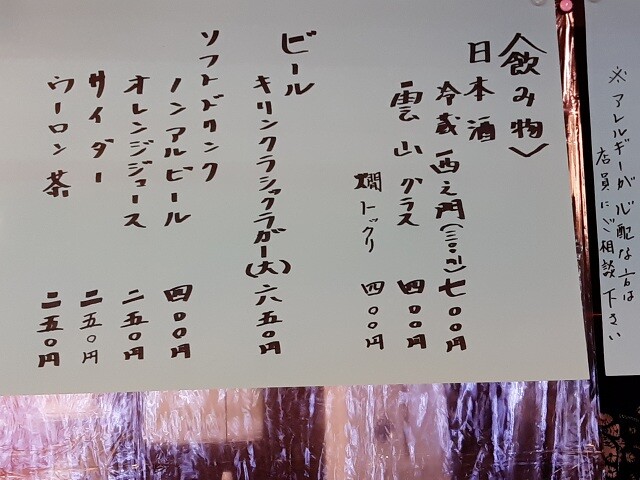 ※アレルギーが心配な方は
店員にご相談下さい
〈飲み物〉
日本酒
冷蔵 西之門(三〇〇ml)七〇〇円
雲山 グラス 四〇〇円
燗トックリ 四〇〇円
ビール
キリンクラシックラガー(大)六五〇円
ソフトドリンク
ノンアルビール 四〇〇円
オレンジジュース 二五〇円
サイダー 二五〇円
ウーロン茶 二五〇円